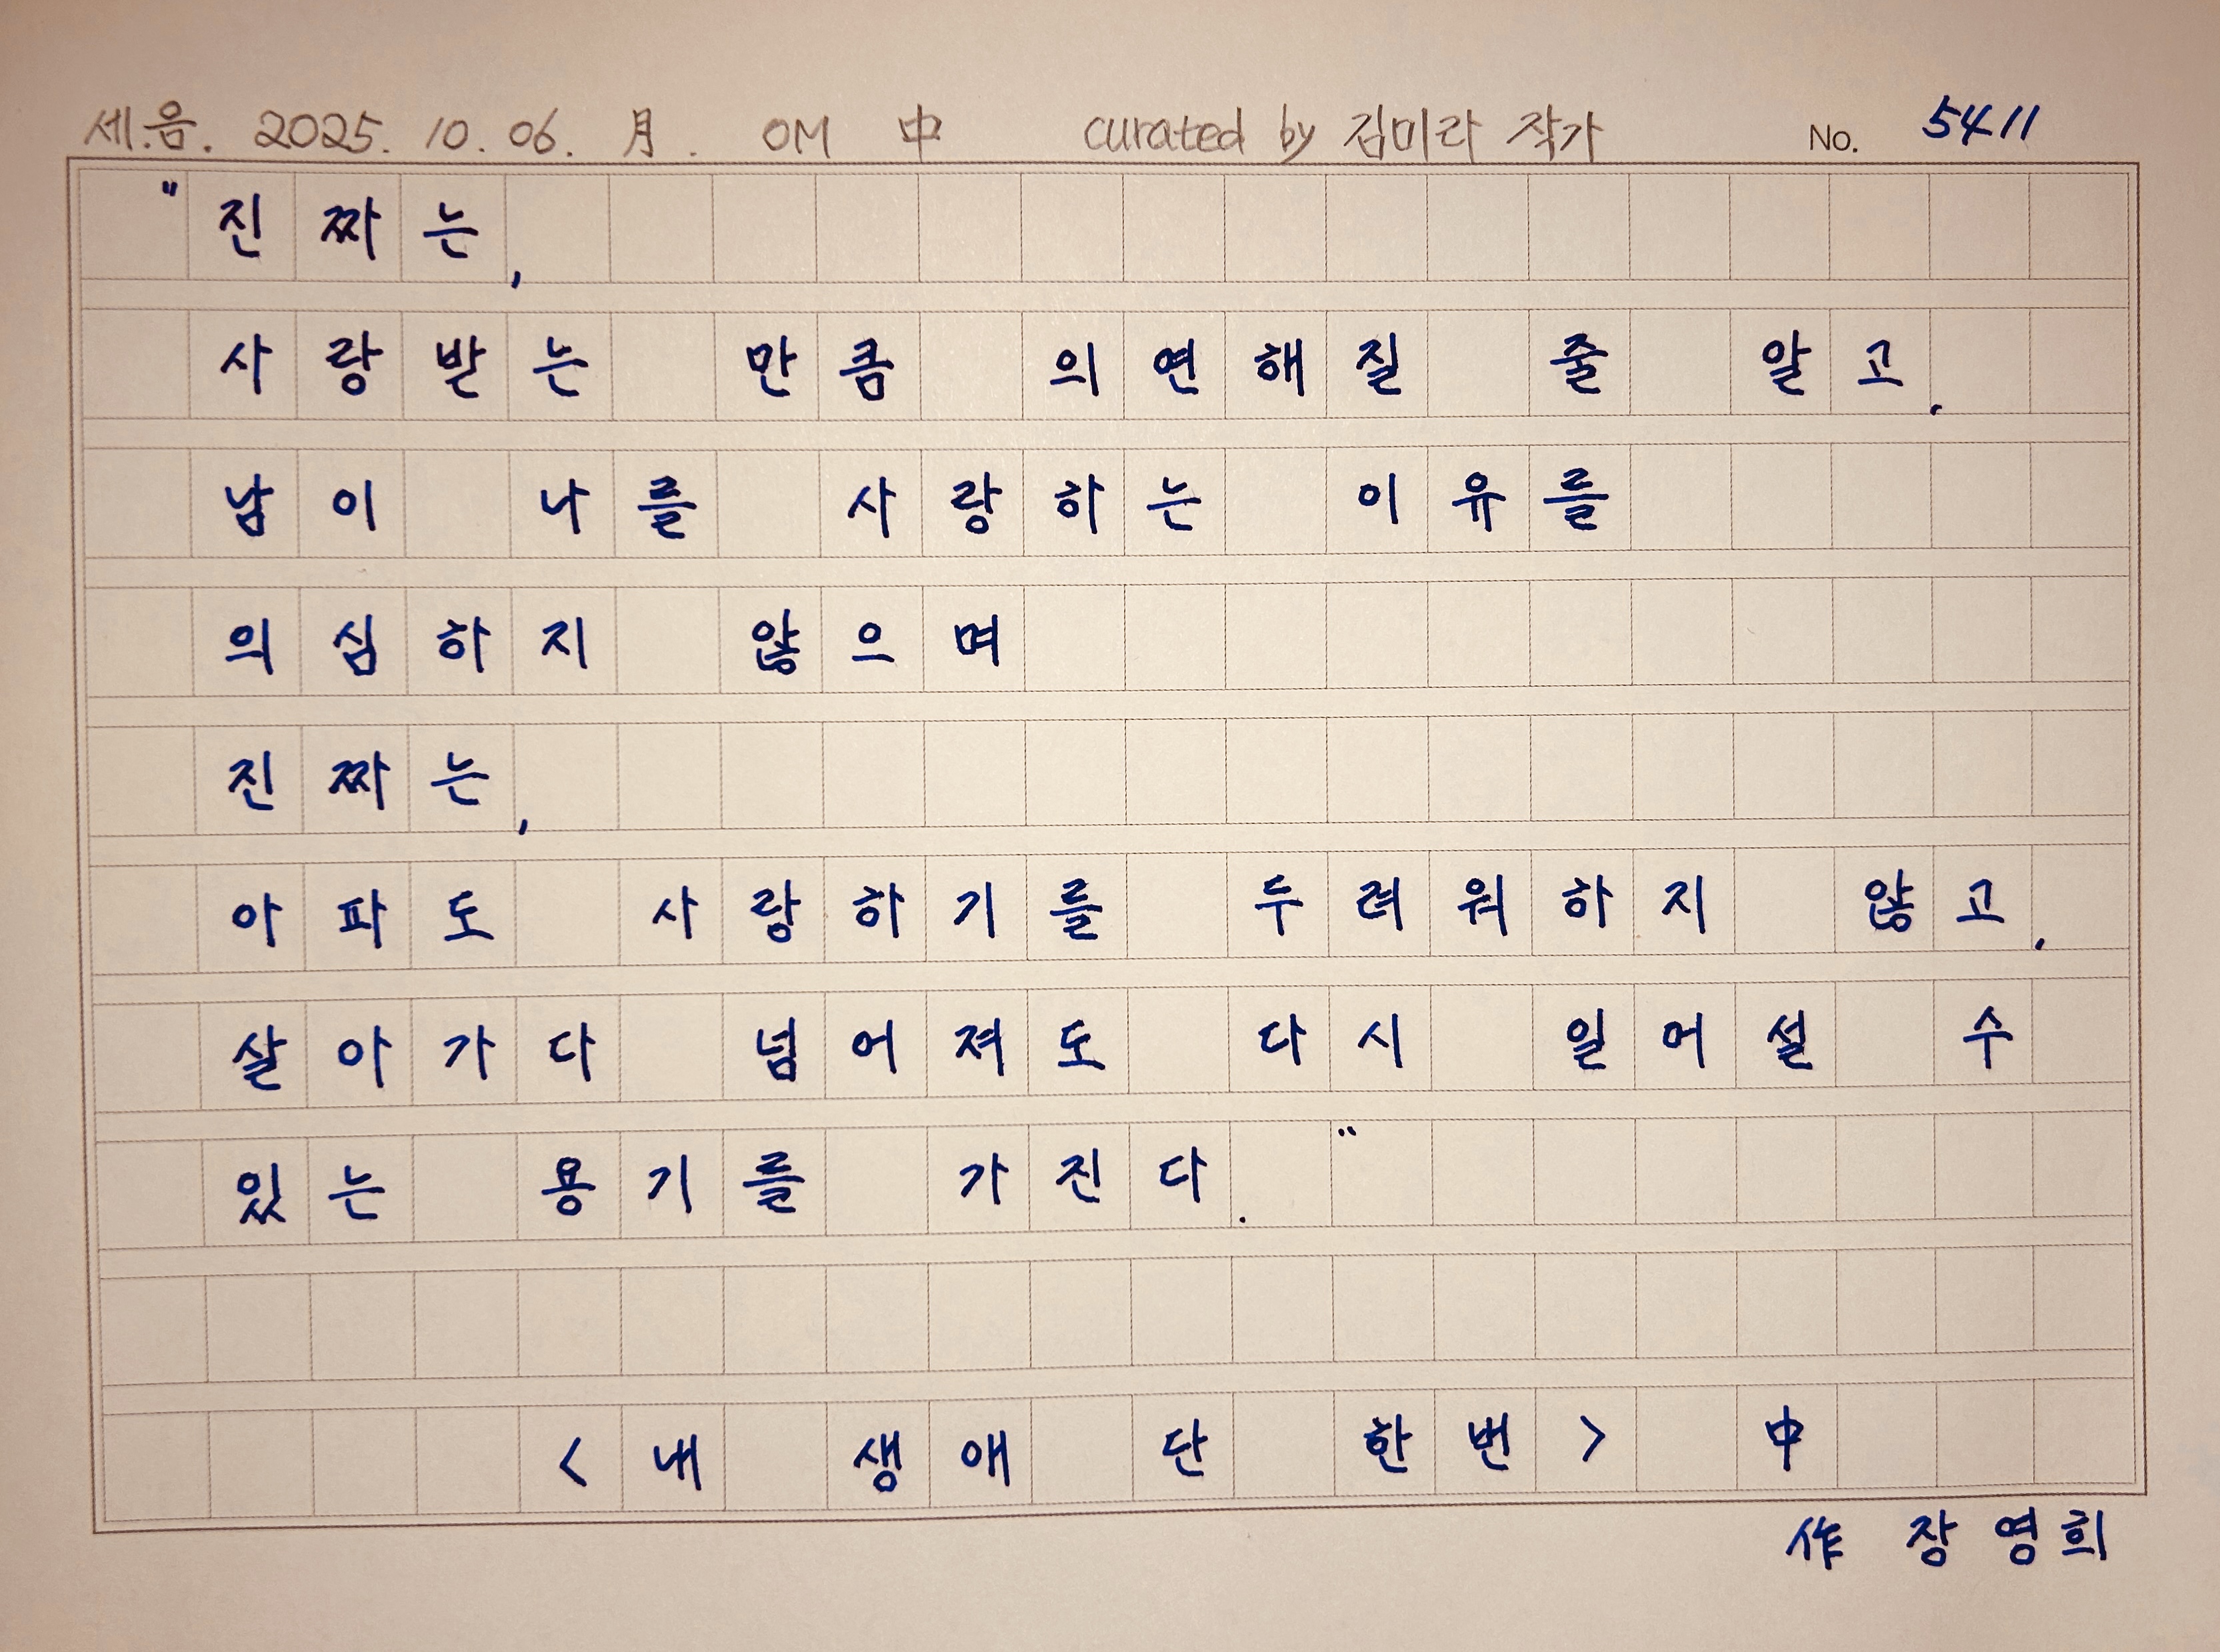 세.음. 2025. 10. 06. 月. OM 中 curated by 김미라 작가 No. 5411
"진짜는,
사랑받는 만큼 의연해질 줄 알고,
남이 나를 사랑하는 이유를
의심하지 않으며
진짜는,
아파도 사랑하기를 두려워하지 않고,
살아가다 넘어져도 다시 일어설 수
있는 용기를 가진다."
<내 생애 단 한번> 中
作 장영희